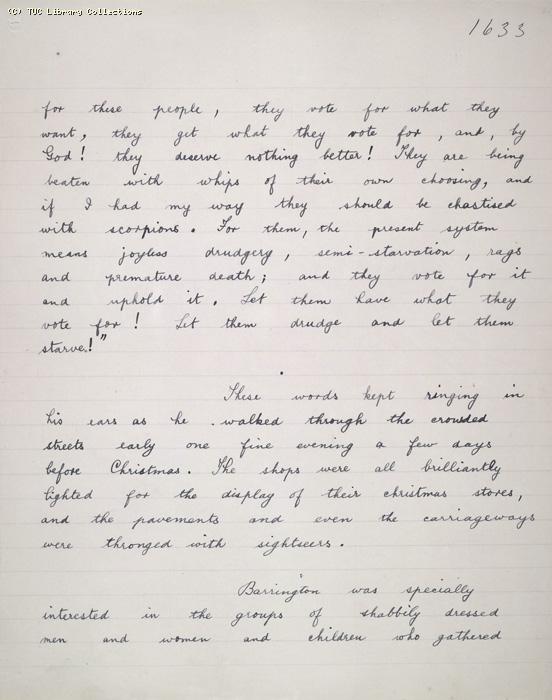 (C) TUC Library Collections
1633
for these people, they vote for what they
want, they get what they vote for, and, by
God! they deserve nothing better! They are being
beaten with whips of their own choosing, and
if I had my way they should be chastised
with scorpions. For them, the present system
means joyless drudgery, semi-starvation, rags
and premature death; and they vote for it
and uphold it. Let them have what they
vote for! Let them drudge and let them
starve!"
These words kept ringing in
his ears as he walked through the crowded
streets early one fine evening a few days
before Christmas. The shops were all brilliantly
lighted for the display of their christmas stores,
and the pavements and even the carriageways
were thronged with sightseers.
Barrington was specially
interested in the groups of shabbily dressed
men and women and children who gathered